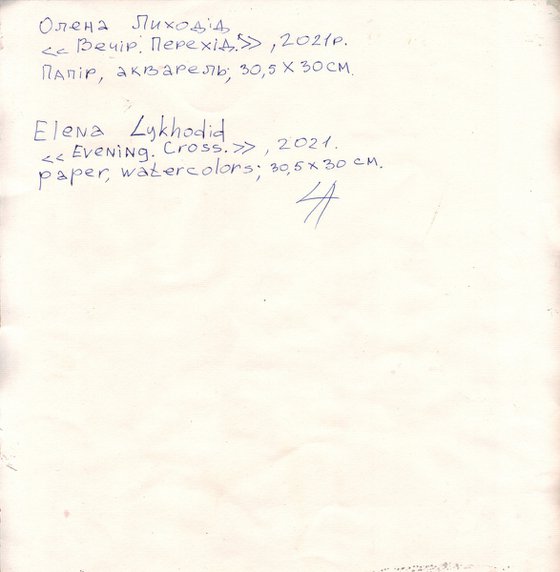 Олена Лиходід
<< Вечір. Перехід.>>, 2021р.
Папір, акварель; 30,5 X 30 см.
Elena Lykhodid
<< Evening. Cross. >>, 2021.
paper, watercolors; 30,5 x 30 см.